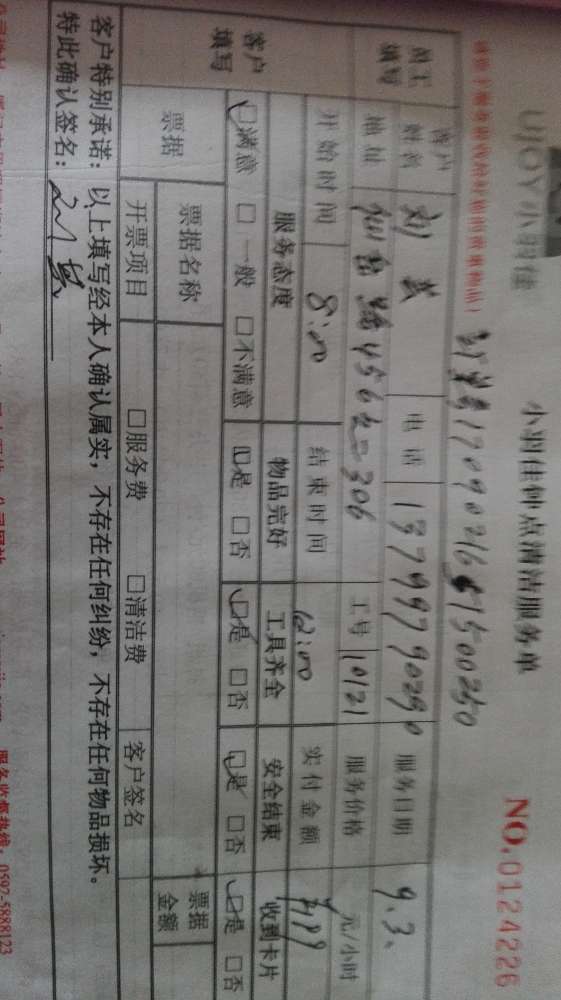 UJOY小羽佳
小羽佳钟点清洁服务单
NO.0124226
订单号1709021651500250
员工填写 客户姓名 刘 电话 13799790290 服务日期 9.3.
地址 仙岳路456之二306 工号 10121 服务价格 元/小时
开始时间 8:00 结束时间 12:00 实付金额
客户填写 服务态度 物品完好 工具齐全 安全结束 收到卡片
☑满意 □一般 □不满意 ☑是 □否 ☑是 □否 ☑是 □否 ☑是 □否
票据 票据名称 票据金额
开票项目 □服务费 □清洁费 客户签名
客户特别承诺：以上填写经本人确认属实，不存在任何纠纷，不存在任何物品损坏。
特此确认签名：
服务监督热线：0592-5888123